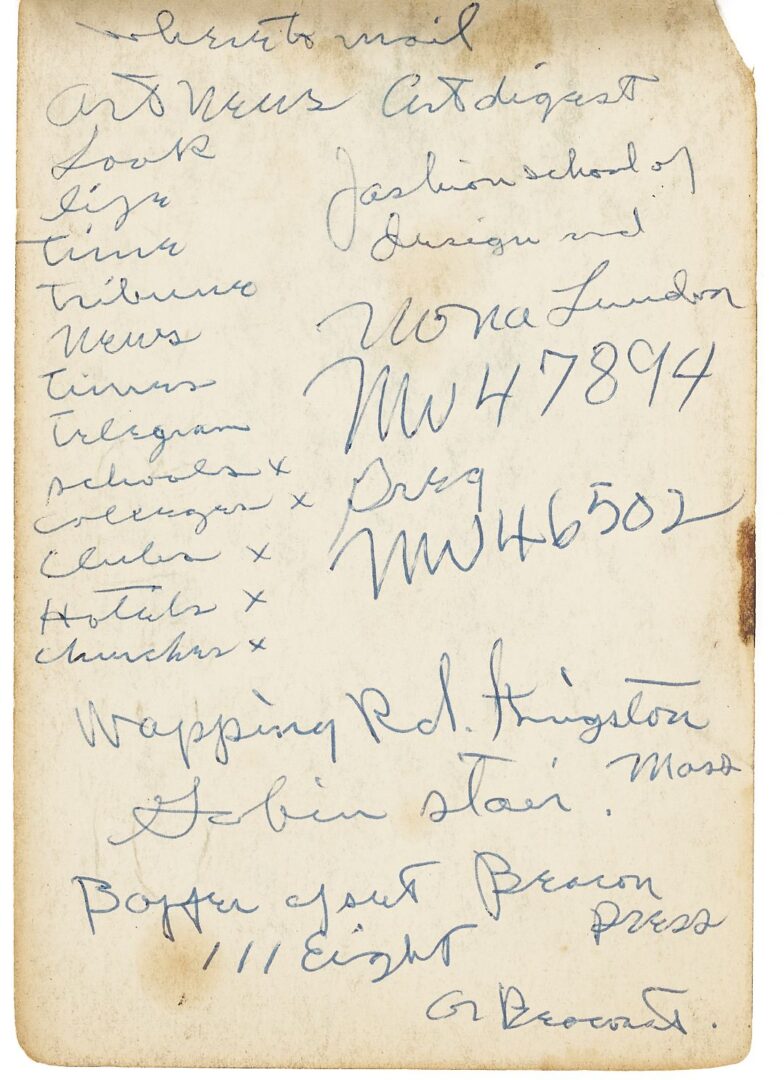 where to mail
Art News Art digest
Look
life
time
tribune
News
times
telegram
schools x
colleges x
Clubs x
Hotels x
churches x
Fashion school of
design
Nona
MU 47894
MU 46502
Wapping Rd. Kingston
Mass
Gobin stair.
Beacon
press
111 Eight
Or